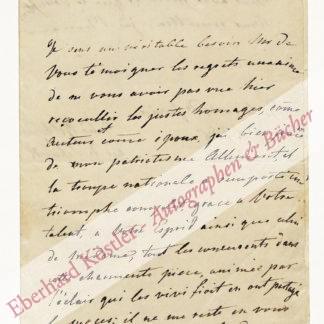 Je sens un véritable besoin
vous témoigner les regrets unanimes
de ne vous avoir pas vue hier
recueillir les justes homages, come
auteur et come épouse,
de mon patriotisme Allemand, et
la troupe nationale a remporté un
triomphe
talent, à votre esprit ainsi que celui
de tout les concurents dans
cette charmante piece, animée par
l'éclair qui les vivifioit en ont partagé
succès; il ne me reste en vous
Eberhard Köstler Autographen & Bücher